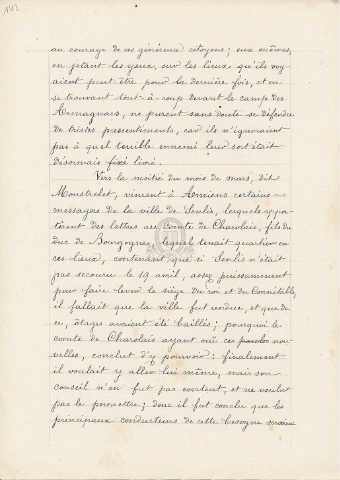 au courage de ces généreux citoyens; eux mêmes,
en jetant les yeux, sur les lieux qu'ils voy-
aient peut être pour la dernière fois, et en
se trouvant tout-à-coup devant le camp des
Armagnacs, ne purent sans doute se défendre
de tristes pressentiments, car ils n'ignoraient
pas à quel terrible ennemi leur sort était
désormais fixé livré.
Vers la moitié du mois de mars, dit
Monstrelet, vinrent à Amiens certains
messages de la ville de Senlis, lesquels appo-
tèrent des lettres au comte de Charolais, fils du
duc de Bourgogne, lequel tenait quartier en
ces lieux, contenant que si Senlis n'était
pas secouru le 19 avril, assez puissamment
pour faire lever le siège du roi et du Connétable,
il fallait que la ville fut rendue, et que de
ce, ôtages avaient été baillés; pourquoi le
comte de Charolais ayant ouï ces paroles nou-
velles, conclut d'y pourvoir: finalement
il voulait y aller lui même, mais son
conseil n'en fut pas content, et ne voulut
pas le permettre; donc il fut conclu que les
principaux conducteurs de cette besogne